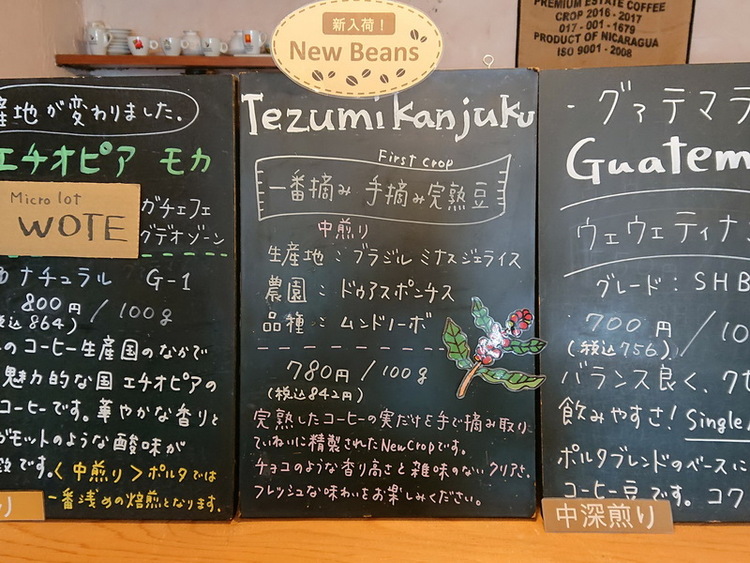 PREMIUM ESTATE COFFEE
CROP 2016 - 2017
017 - 001 - 1679
PRODUCT OF NICARAGUA
ISO 9001 - 2008
産地が変わりました.
エチオピア モカ
Micro lot
WOTE
ガチェフェ
グデオゾーン
ナチュラル G-1
800円/100g
(税込864)
のコーヒー生産国のなかで
魅力的な国 エチオピアの
コーヒーです。華やかな香りと
ガモットのような酸味が
です。<中煎り>ポルタでは
一番浅めの焙煎となります.
新入荷!
New Beans
Tezumi Kanjuku
First crop
一番摘み 手摘み完熟豆
中煎り
生産地:ブラジル ミナスジェライス
農園:ドゥアスポンチス
品種:ムンドノーボ
780円/100g
(税込842円)
完熟したコーヒーの実だけを手で摘み取り、
ていねいに精製されたNewCropです。
チョコのような香り高さと雑味のないクリアさ、
フレッシュな味わいをお楽しみください。
・グァテマラ
Guatem
ウェウェティナ
グレード:SHB
700円/10
(税込756)
バランス良く、クセ
飲みやすさ! Single
ポルタブレンドのベースに
コーヒー豆です。コク
中深煎り